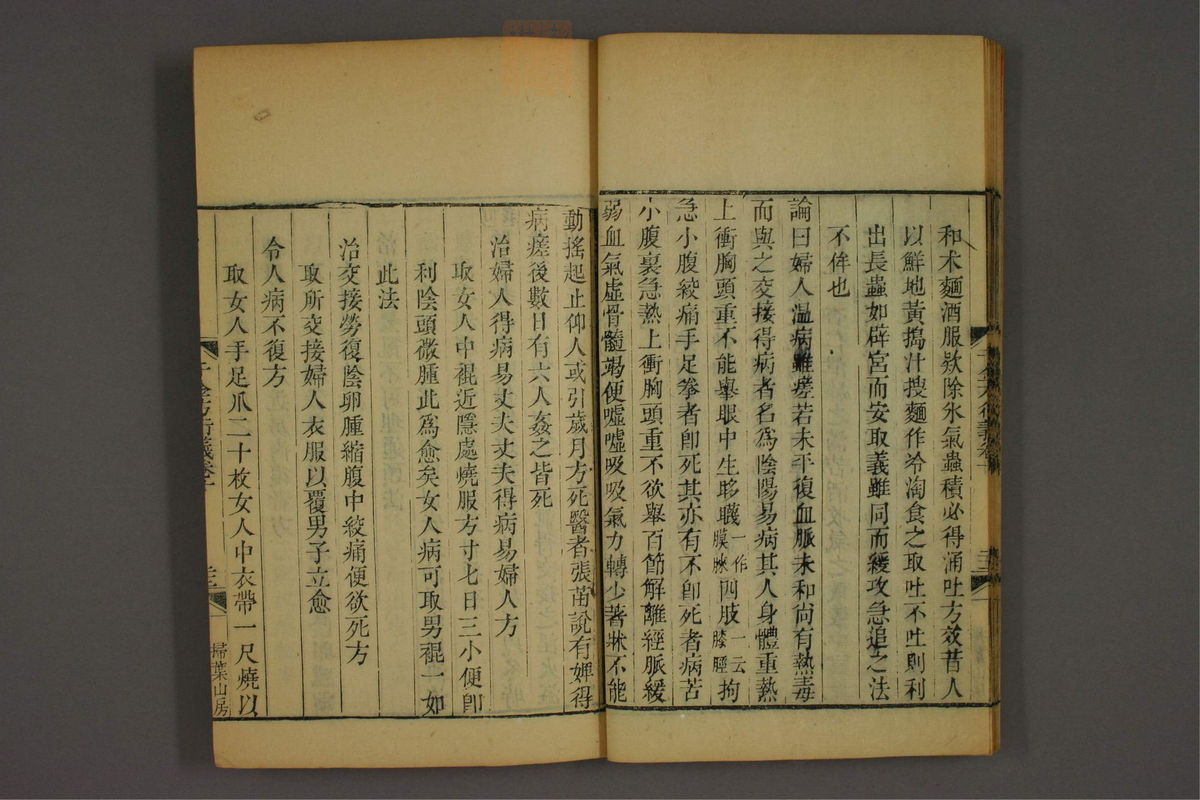 和术麵酒服欵除氷氣蟲積必得涌吐方效昔人
以鮮地黃搗汁搜麵作冷淘食之取吐不吐則利
出長蟲如辟宮而安取義雖同而緩攻急追之法
不侔也
論曰婦人温病雖瘥若未平復血脈未和尚有熱毒
而與之交接得病者名爲陰陽易病其人身體重熱
上衝胸頭重不能舉眼中生眵䁾一作膜脥四肢一云膝脛拘
急小腹絞痛手足拳者卽死其亦有不卽死者病苦
小腹裏急熱上衝胸頭重不欲舉百節解離經脈緩
弱血氣虛骨髓竭便噓噓吸吸氣力轉少著牀不能
動搖起止仰人或引歲月方死醫者張苗說有婢得
病瘥後數日有六人姦之皆死
治婦人得病易丈夫丈夫得病易婦人方
取女人中裩近隱處燒服方寸七日三小便卽
利陰頭微腫此爲愈矣女人病可取男裩一如
此法
治交接勞復陰卵腫縮腹中絞痛便欲死方
取所交接婦人衣服以覆男子立愈
令人病不復方
取女人手足爪二十枚女人中衣帶一尺燒以
掃葉山房